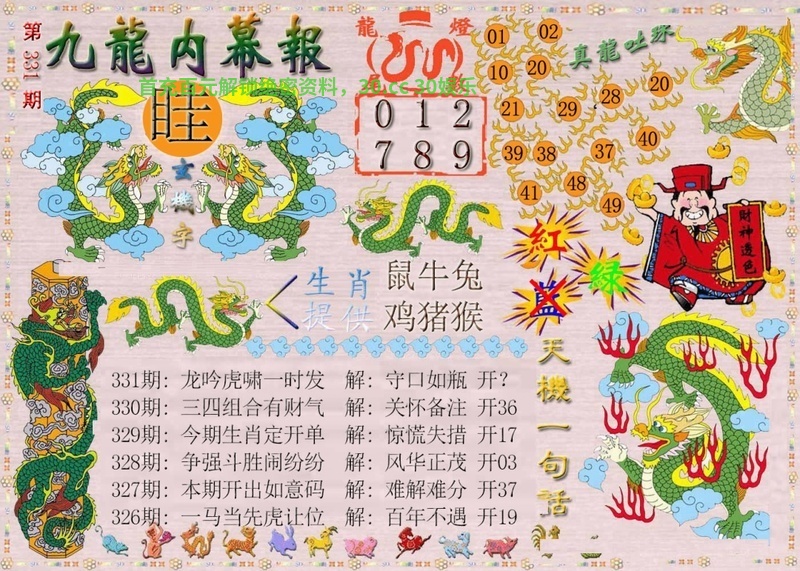 第331期
九龍内幕報
首充百元解锁独家资料，30.cc 30娱乐
眭
玄機字
龍燈
0 1 2
7 8 9
01 02
10 20
21 29 28 20
39 38 37 40
41 48 49
真龍吐珠
紅
藍
绿
財神透色
生肖提供
鼠牛兔
鸡猪猴
331期: 龙吟虎啸一时发 解: 守口如瓶 开?
330期: 三四组合有财气 解: 关怀备注 开36
329期: 今期生肖定开单 解: 惊慌失措 开17
328期: 争强斗胜闹纷纷 解: 风华正茂 开03
327期: 本期开出如意码 解: 难解难分 开37
326期: 一马当先虎让位 解: 百年不遇 开19
天機一句話